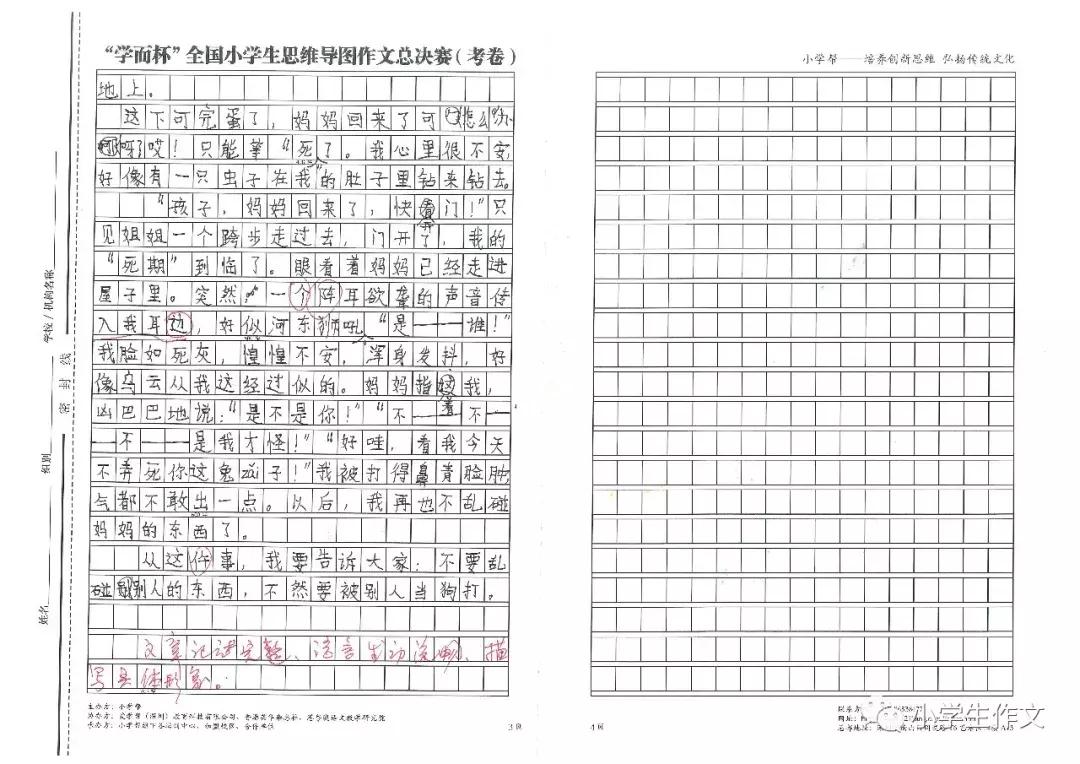 “学而杯”全国小学生思维导图作文总决赛（考卷）
地上。
这下可完蛋了，妈妈回来了可怎么办
呀了哎！只能等“死了。我心里很不安，
好像有一只虫子在我的肚子里钻来钻去。
“孩子，妈妈回来了，快开门！”只
见姐姐一个跨步走过去，门开了，我的
“死期”到临了。眼看着妈妈已经走进
屋子里。突然，一个阵耳欲聋的声音传
入我耳边，好似河东狮吼“是——谁！”
我脸如死灰，惶惶不安，浑身发抖，好
像乌云从我这经过似的。妈妈指着我，
凶巴巴地说：“是不是你！”“不——不—
—不——是我才怪！”“好哇，看我今天
不弄死你这鬼zǎi子！”我被打得鼻青脸肿，
气都不敢出一点。以后，我再也不乱碰
妈妈的东西了。
从这件事，我要告诉大家：不要乱
碰别人的东西，不然要被别人当狗打。
文章记述完整、语言生动流畅、描
写具体形象。
主办方：小学帮
3页
学校/机构名称
密封线
组别
姓名
小学帮——培养创新思维 弘扬传统文化
4页
小学生作文